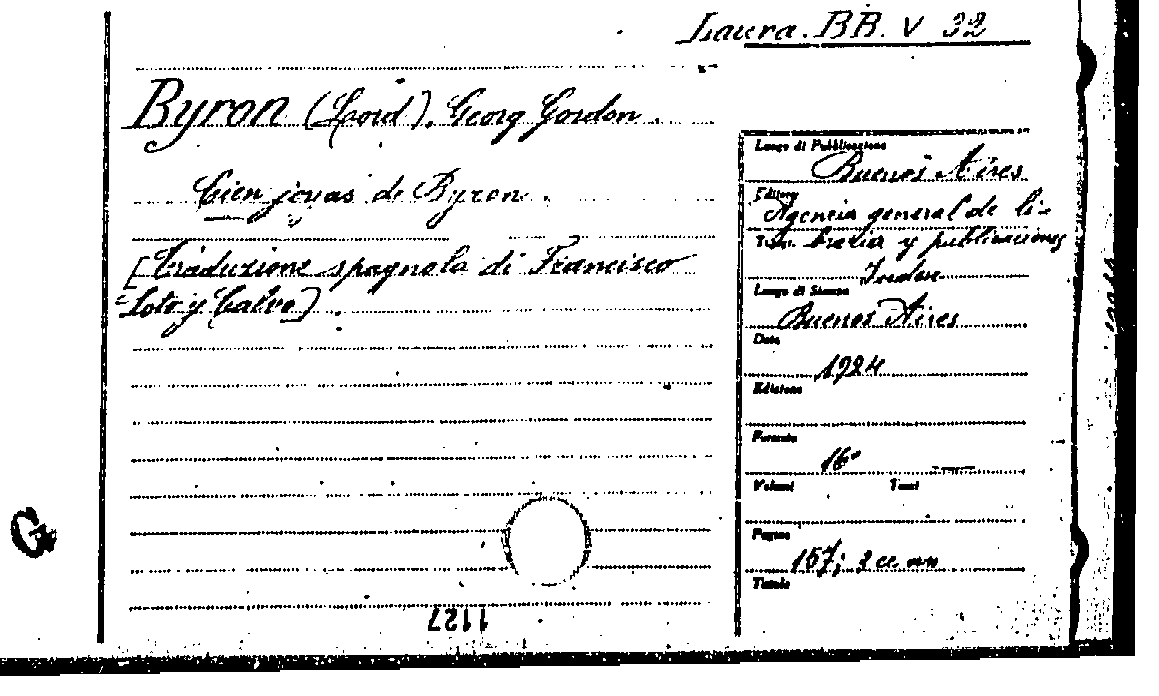 Laura. BB. V 32
Byron (Lord), Georg Gordon.
Cien joyas de Byron.
[Traduzione spagnola di Francisco
Soto y Calvo].
Luogo di Pubblicazione
Buenos Aires
Editore
Agencia general de li-
Tipogr. brerias y publicaciones
Luogo di Stampa
Buenos Aires
Data
1924
Edizione
Formato
16°
Volumi Tomi
Pagine
157; 2 cc nn
Tavole
1127
G